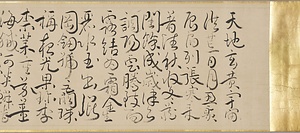 天地玄黃宇宙
洪荒日月盈昃
辰宿列張寒來
暑往秋收冬藏
閏餘成歲律呂
調陽雲騰致雨
露結為霜金生
麗水玉出崑
岡劍號巨闕珠
稱夜光果珍李
柰菜重芥薑
海鹹河淡